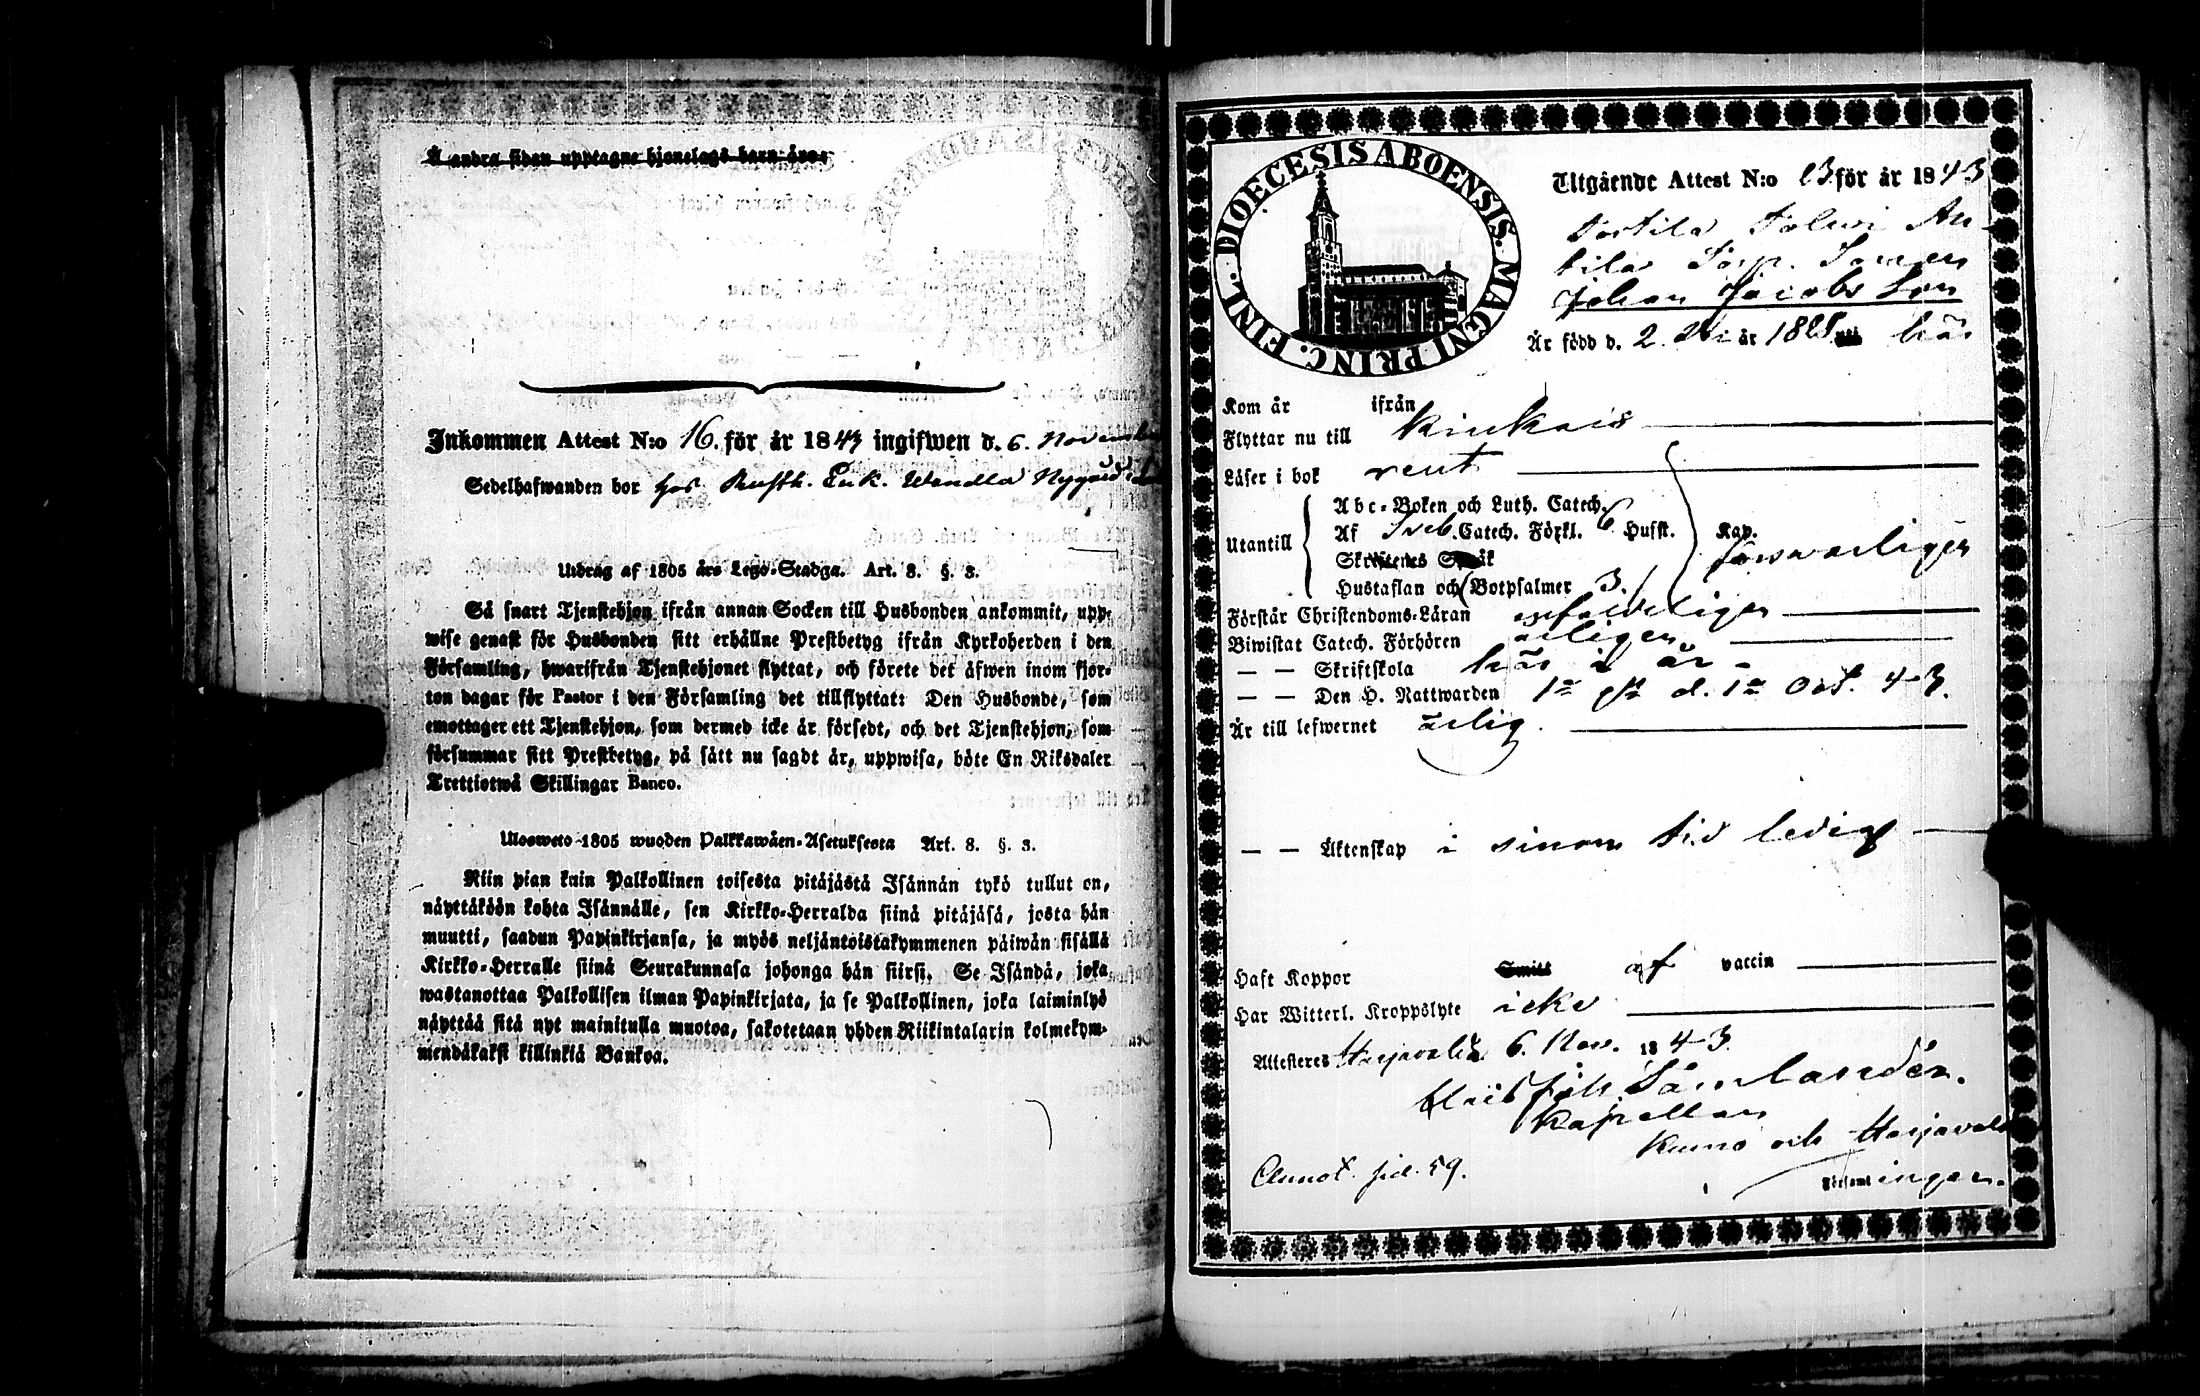 Å andra sidan upptagne hjonelags barn äro:
Inkommen Attest N:o 16. för år 1843 ingifwen d. 6. November
Sedelhafwanden bor hos Rusth. Enk. Wendla Nygård
Utdrag af 1805 års Lego-Stadga. Art. 8. §. 3.
Så snart Tjenstehjon ifrån annan Socken till Husbonden ankommit, upp-
wise genast för Husbonden sitt erhållne Prestbetyg ifrån Kyrkoherden i den
Församling, hwarifrån Tjenstehjonet flyttat, och förete det äfwen inom fjor-
ton dagar för Pastor i den Församling det tillflyttat: Den Husbonde, som
emottager ett Tjenstehjon, som dermed icke är försedt, och det Tjenstehjon, som
försummar sitt Prestbetyg, på sätt nu sagdt är, uppwisa, böte En Riksdaler
Trettiotwå Skillingar Banco.
Ulosweto 1805 wuoden Palkkawäen-Asetuksesta Art. 8. §. 3.
Niin pian kuin Palkollinen toisesta pitäjästä Isännän tykö tullut on,
näyttäköön kohta Isännälle, sen Kirkko-Herralda siinä pitäjäsä, josta hän
muutti, saadun Papinkirjansa, ja myös neljäntoistakymmenen päiwän sisällä
Kirkko-Herralle siinä Seurakunnasa johonga hän siirsi. Se Isändä, joka
wastanottaa Palkollisen ilman Papinkirjata, ja se Palkollinen, joka laiminlyö
näyttää sitä nyt mainitulla muotoa, sakotetaan yhden Riikintalarin kolmekym-
mendäkaksi killinkiä Bankoa.
DIOECESIS ABOENSIS. MAGNI PRINC. FINL.
Utgående Attest N:o 23 för år 1843
Torttila Tolwi An-
tila Sonen
Johan Jacobs Son
Är född d. 2. är 18 uti här
Kom år ifrån
Flyttar nu till Kiukais
Läser i bok rent
Utantill
Abc-Boken och Luth. Catech.
Af Sveb. Catech. Förkl. 6 Husst. Kap.
Skriftenes Språk försvarligen
Hustaflan och Botpsalmer 3.
Förstår Christendoms-Läran enfaldeligen
Biwistat Catech. Förhören årligen
— — Skriftskola här i år -
— — Den H. Nattwarden 1a gn d. 1a Oct. 43.
Är till lefwernet ärlig.
— — Äktenskap i sinom tid ledig
Haft Koppor Smitt af vaccin
Har Witterl. Kroppslyte icke
Attesteres Harjavalta 6. Nov. 1843.
Sömlander.
Kapellan
Kumo och Harjavalta
Församlingen.
Annot. sid. 59.